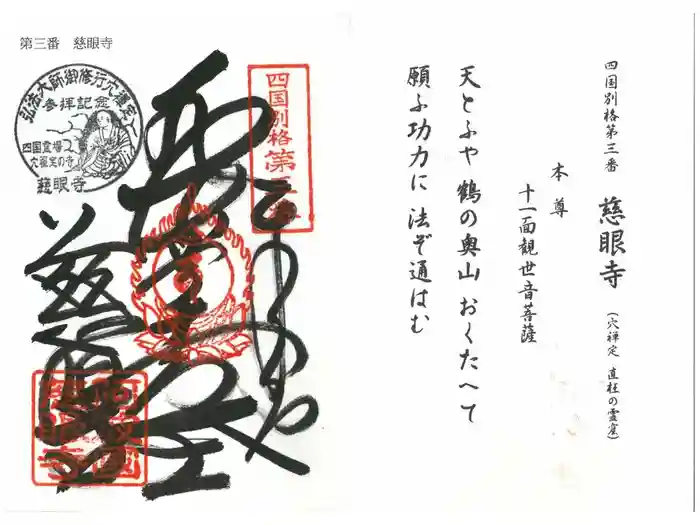 第三番　慈眼寺
弘法大師御修行穴禅定
参拝記念
四国霊場
穴禅定の寺
慈眼寺
四国別格第三番
慈眼寺
四国別格第三番　慈眼寺　(穴禅定　直枉の霊窟)
本尊
十一面観世音菩薩
天とふや　鶴の奥山　おくたへて
願ふ功力に　法ぞ通はむ